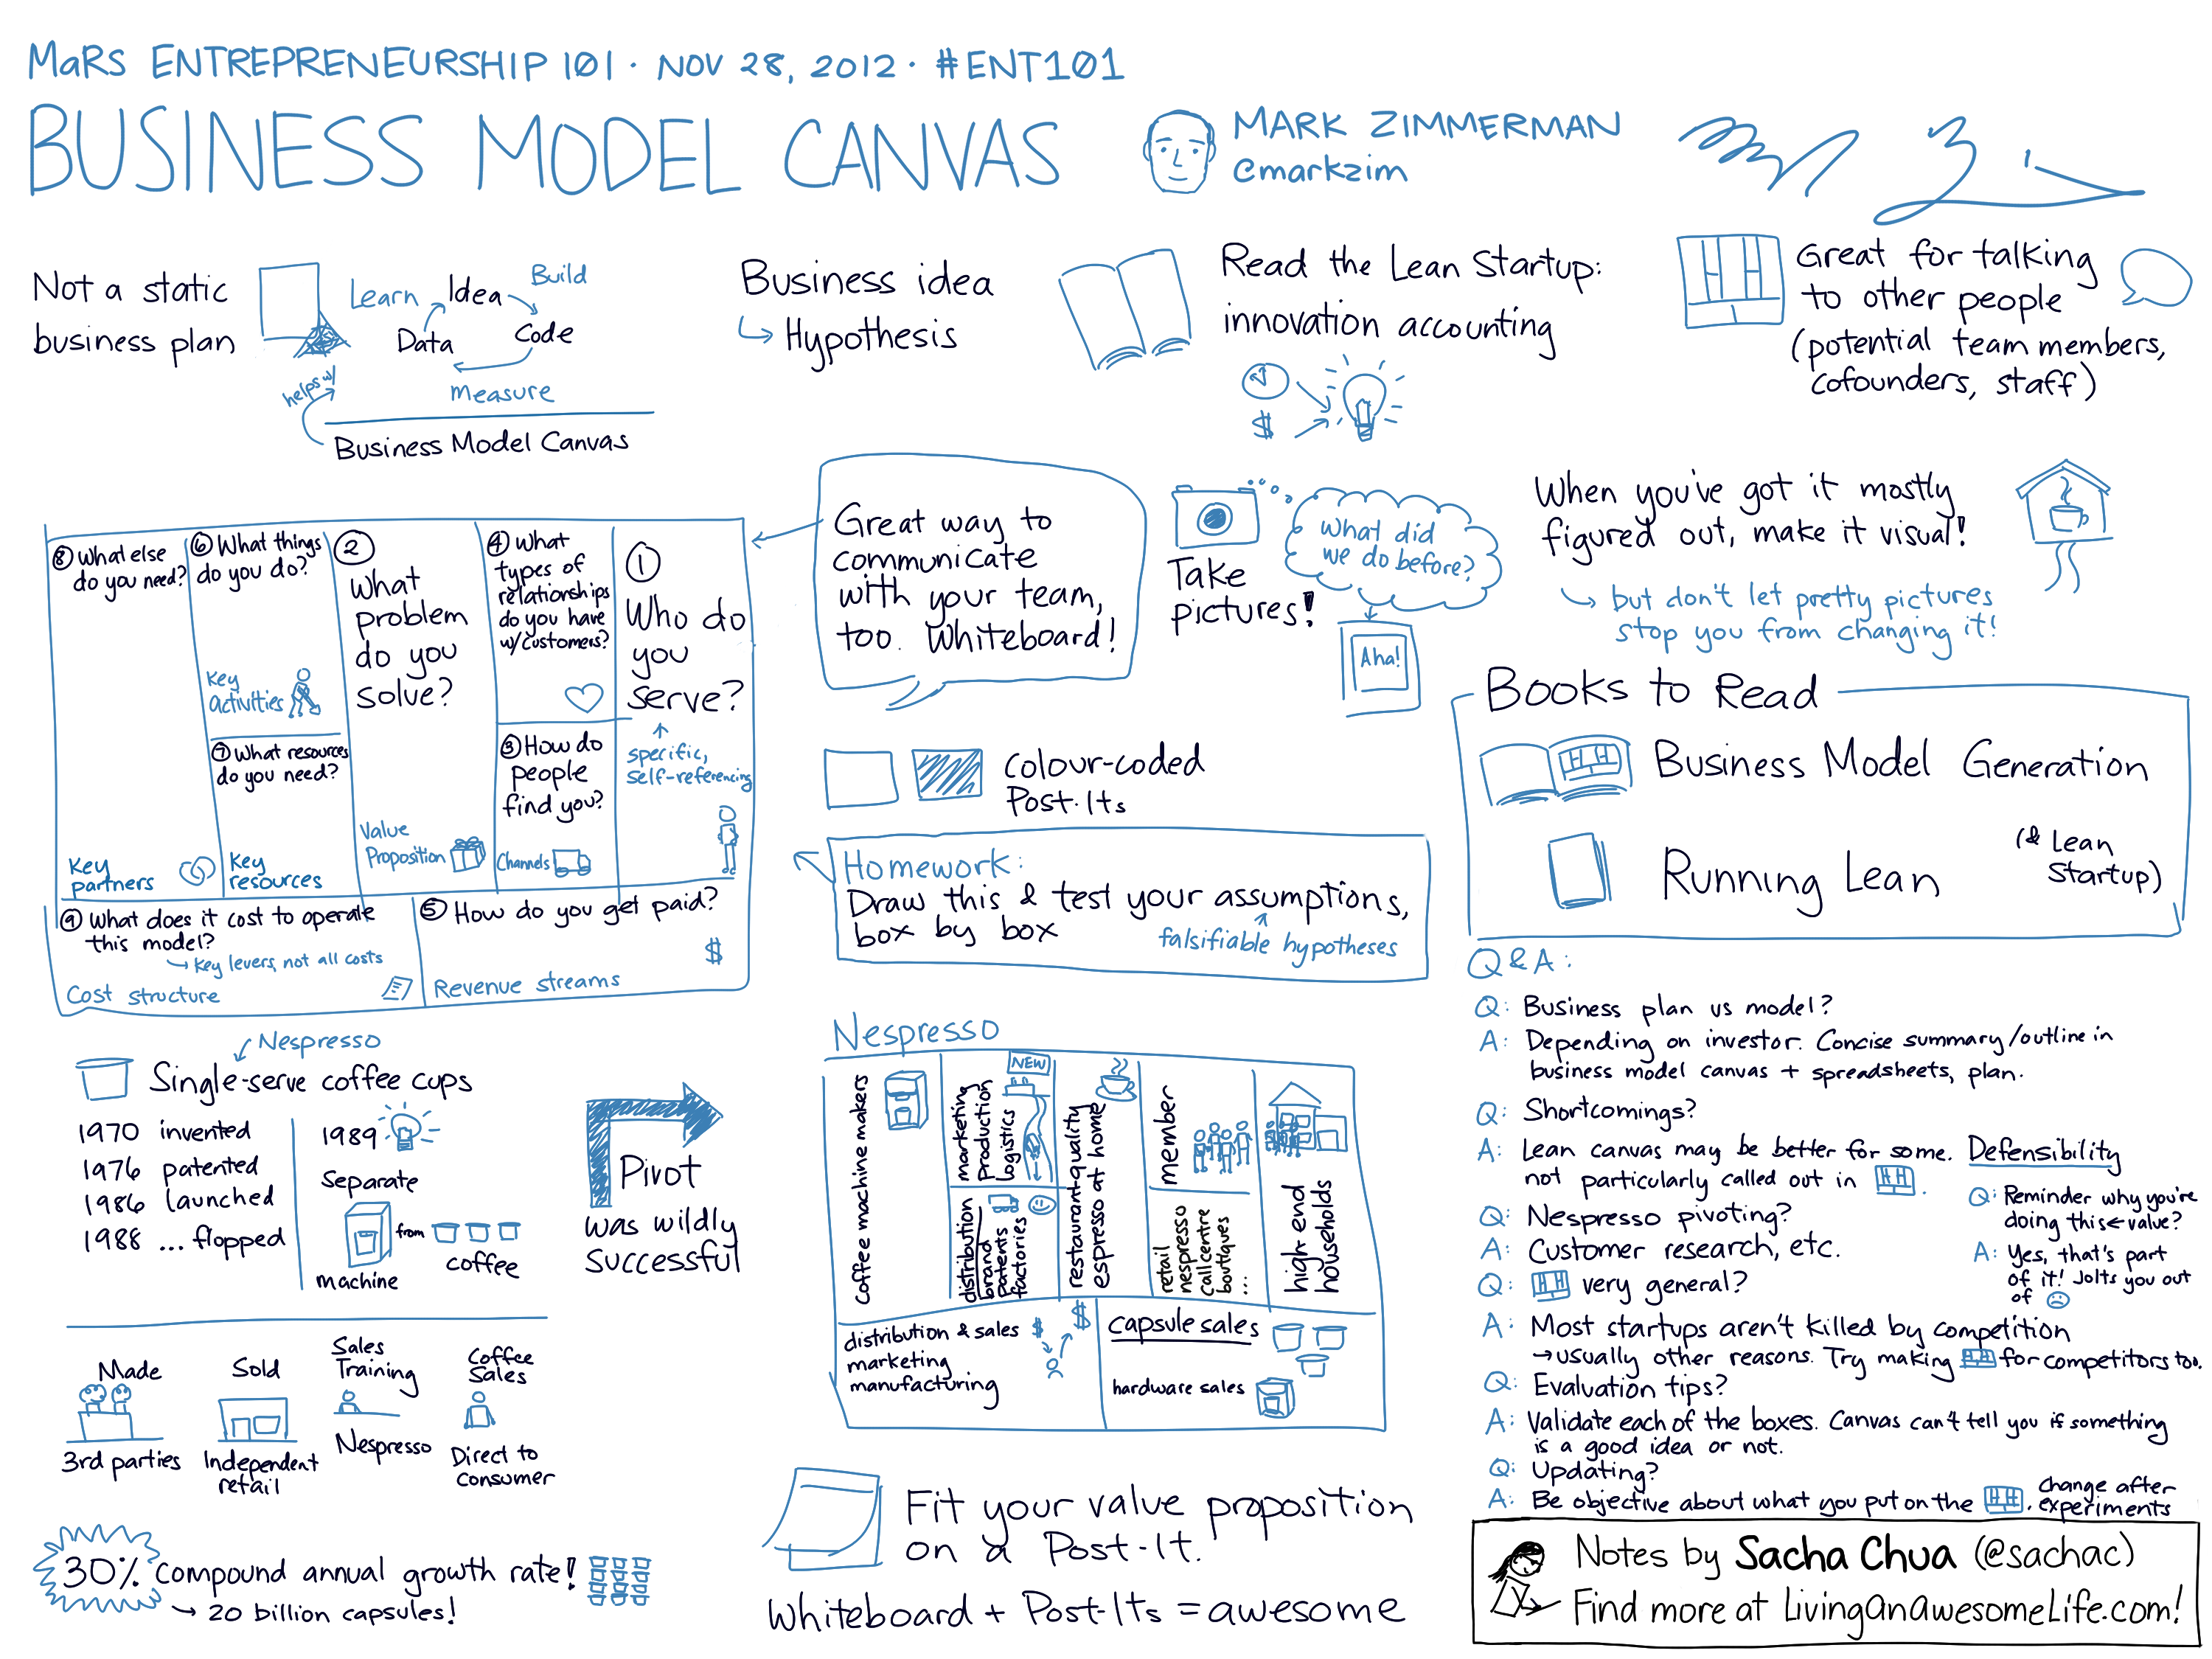 MaRS ENTREPRENEURSHIP 101 · NOV 28, 2012 · #ENT101
BUSINESS MODEL CANVAS
MARK ZIMMERMAN
@markzim
Not a static
business plan
Learn
Idea
Build
Data
Code
measure
helps w/
Business Model Canvas
Business idea
↳ Hypothesis
Read the Lean Startup:
innovation accounting
$
Great for talking
to other people
(potential team members,
cofounders, staff)
⑧ What else
do you need?
Key
partners
⑥ What things
do you do?
Key
activities
⑦ What resources
do you need?
Key
resources
②
What
problem
do you
solve?
Value
Proposition
④ What
types of
relationships
do you have
w/customers?
③ How do
people
find you?
Channels
①
Who do
you
serve?
specific,
self-referencing
⑨ What does it cost to operate
this model?
→ Key levers, not all costs
Cost structure
⑤ How do you get paid?
$
Revenue streams
Great way to
communicate
with your team,
too. Whiteboard!
Take
pictures!
What did
we do before?
Aha!
When you've got it mostly
figured out, make it visual!
↳ but don't let pretty pictures
stop you from changing it!
Colour-coded
Post-Its
Homework:
Draw this & test your assumptions,
box by box
falsifiable hypotheses
Books to Read
Business Model Generation
Running Lean
(& Lean
Startup)
Nespresso
Single-serve coffee cups
1970 invented
1976 patented
1986 launched
1988 ... flopped
1989
Separate
machine
from
coffee
Pivot
was wildly
successful
Made
3rd parties
Sold
Independent
retail
Sales
Training
Nespresso
Coffee
Sales
Direct to
consumer
30% compound annual growth rate!
→ 20 billion capsules!
Nespresso
coffee machine makers
marketing
production
logistics
NEW
distribution
brand
patents
factories
restaurant-quality
espresso at home
member
retail
nespresso
call centre
boutiques
...
high end
households
distribution & sales
marketing
manufacturing
$
$
capsule sales
hardware sales
Fit your value proposition
on a Post-It.
Whiteboard + Post-Its = awesome
Q&A:
Q: Business plan vs model?
A: Depending on investor. Concise summary/outline in
business model canvas + spreadsheets, plan.
Q: Shortcomings?
A: Lean canvas may be better for some. Defensibility
not particularly called out in
Q: Nespresso pivoting?
A: Customer research, etc.
Q: Reminder why you're
doing this ← value?
A: Yes, that's part
of it! Jolts you out
of ☹
Q: very general?
A: Most startups aren't killed by competition
→ usually other reasons. Try making for competitors too.
Q: Evaluation tips?
A: Validate each of the boxes. Canvas can't tell you if something
is a good idea or not.
Q: Updating?
A: Be objective about what you put on the . change after
experiments
Notes by Sacha Chua (@sachac)
Find more at LivingAnAwesomeLife.com!